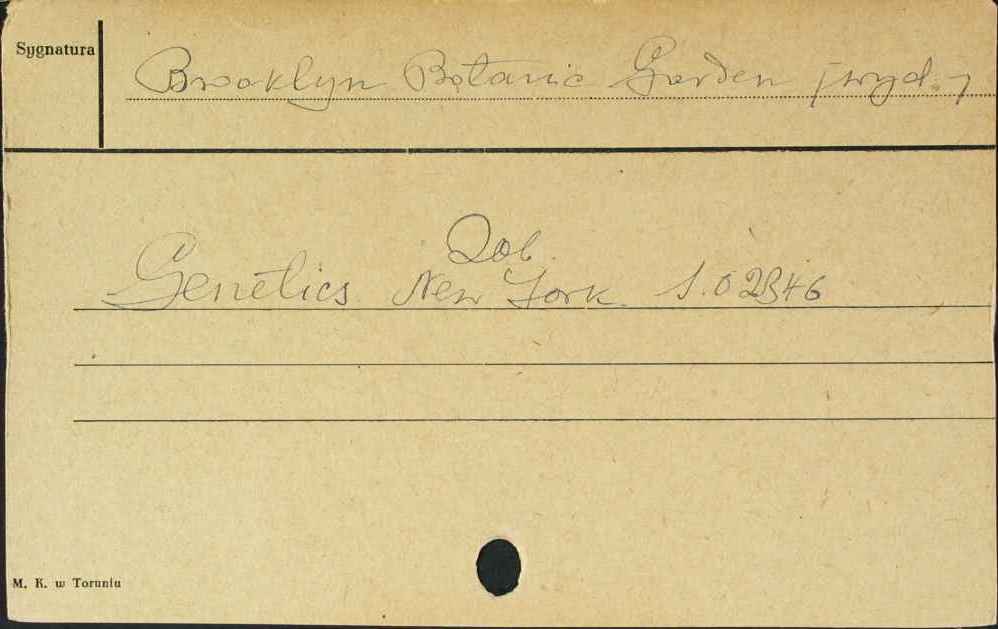 Sygnatura
Brooklyn Botanic Garden [wyd.]
Zob.
Genetics New York S.02346
M. K. w Toruniu